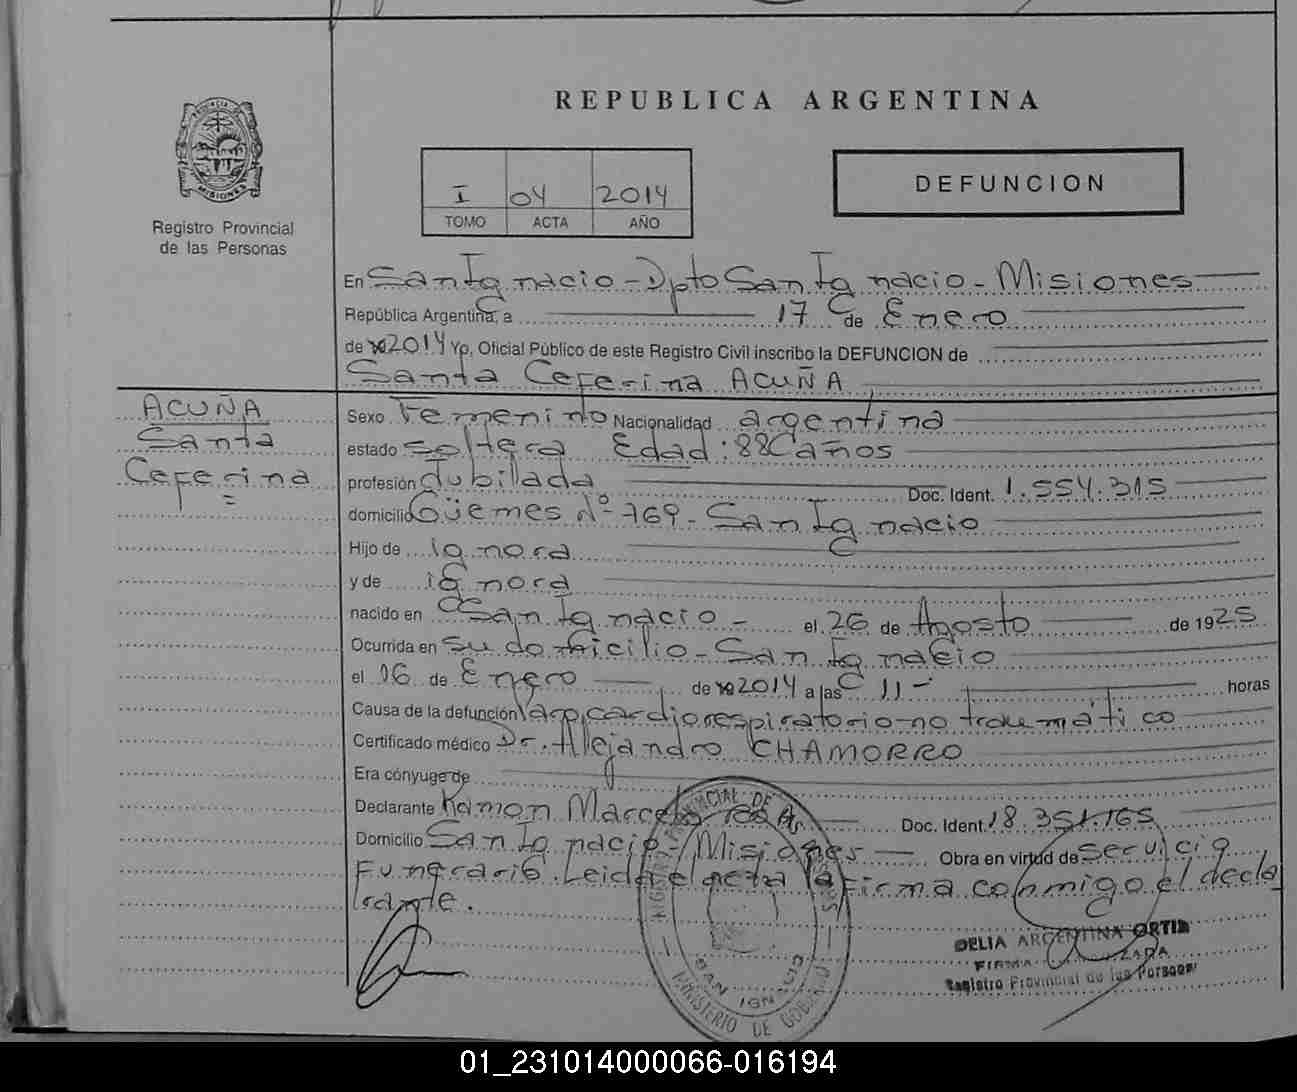 REPUBLICA ARGENTINA
PROVINCIA DE
MISIONES
Registro Provincial
de las Personas
I 04 2014
TOMO ACTA AÑO
DEFUNCION
En San Ignacio - Dpto San Ignacio - Misiones
República Argentina, a 17 de Enero
de 2014 Yo, Oficial Público de este Registro Civil inscribo la DEFUNCION de
Santa Ceferina ACUÑA
ACUÑA
Santa
Ceferina
Sexo Femenino Nacionalidad argentina
estado soltera Edad: 88 años
profesión Jubilada Doc. Ident. 1.554.315
domicilio Güemes Nº 769 - San Ignacio
Hijo de ignora
y de ignora
nacido en San Ignacio - el 26 de Agosto de 1925
Ocurrida en su domicilio - San Ignacio
el 16 de Enero de 2014 a las 11 - horas
Causa de la defunción Paro cardiorespiratorio no traumático
Certificado médico Dr. Alejandro CHAMORRO
Era cónyuge de
Declarante Ramon Marcelo Doc. Ident. 18.351.165
Domicilio San Ignacio - Misiones Obra en virtud de servicio
Funerario. Leida el acta la firma conmigo el decla
rante.
REGISTRO PROVINCIAL DE LAS PERSONAS
SAN IGNACIO
MINISTERIO DE GOBIERNO
DELIA ARGENTINA ORTIZ
FIRMA AUTORIZADA
Registro Provincial de las Personas
01_231014000066-016194